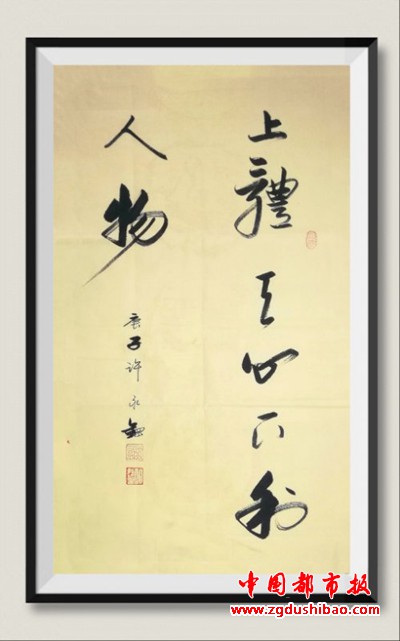 上體天心下利
人物
庚子许永
中国都市报
www.zgdushibao.com